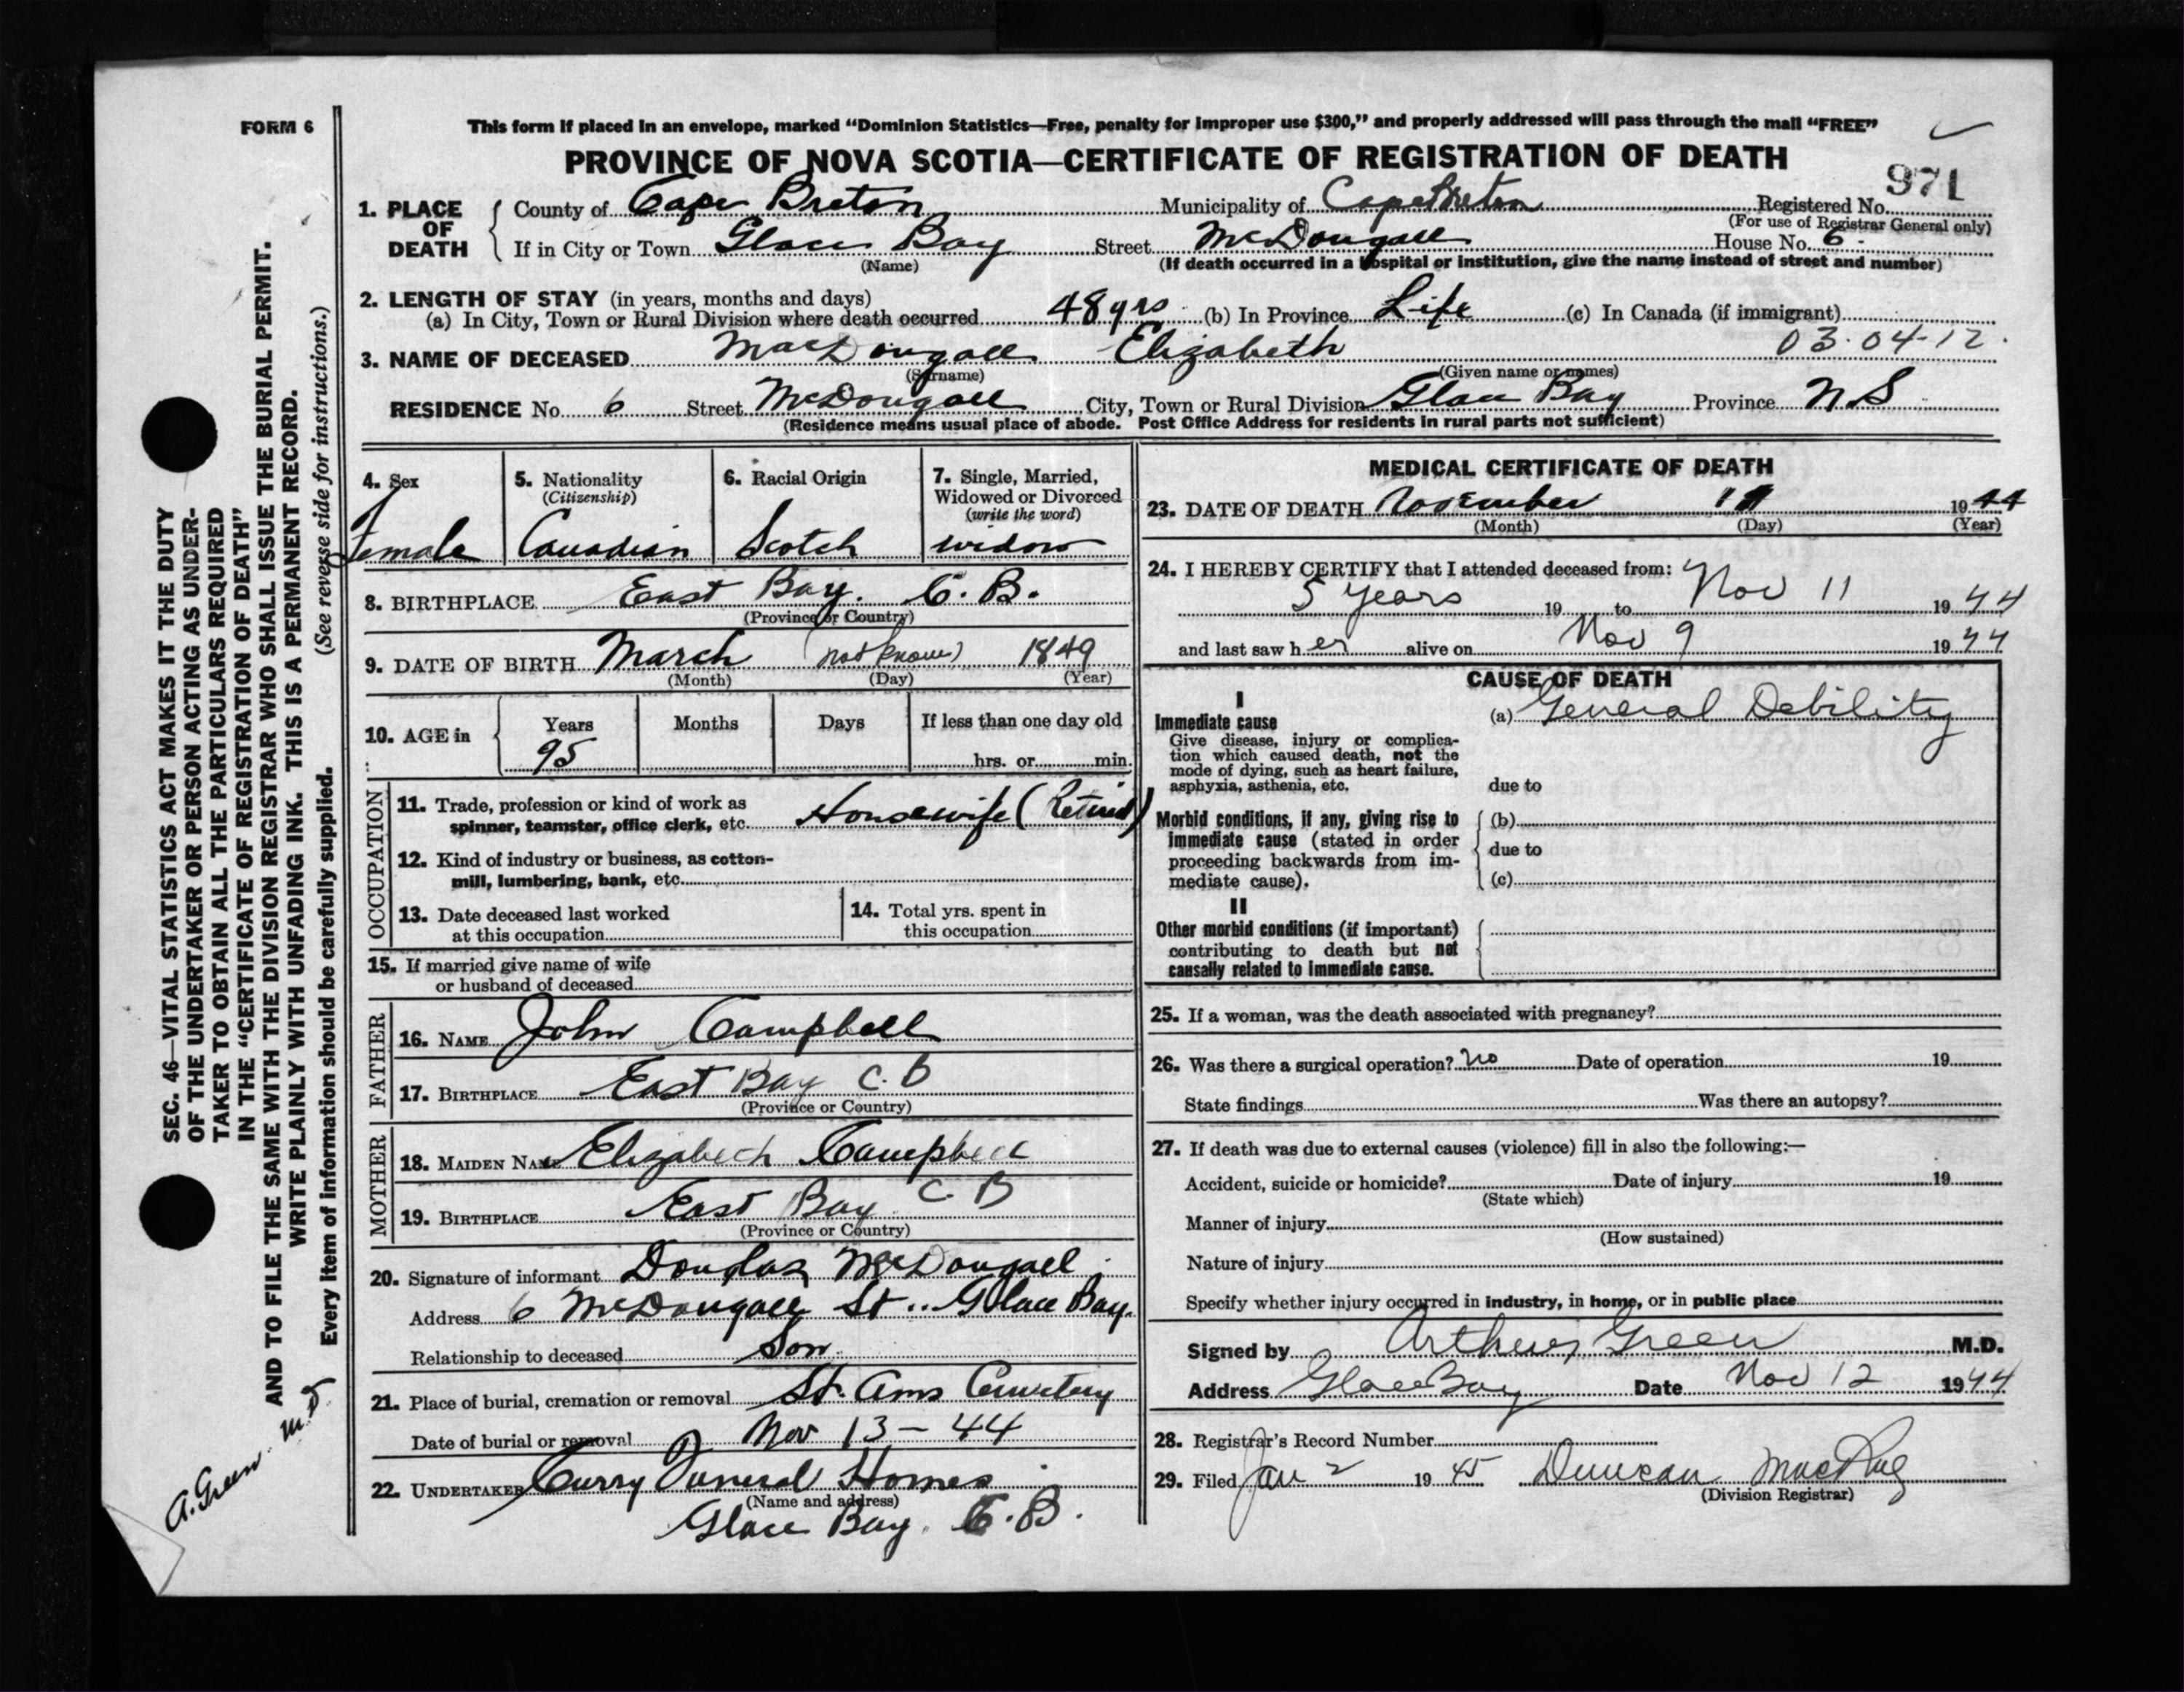 FORM 6
This form if placed in an envelope, marked “Dominion Statistics—Free, penalty for improper use $300,” and properly addressed will pass through the mail “FREE”
PROVINCE OF NOVA SCOTIA—CERTIFICATE OF REGISTRATION OF DEATH
971
1. PLACE OF DEATH County of Cape Breton Municipality of Cape Breton Registered No.
(For use of Registrar General only)
If in City or Town Glace Bay Street McDougall House No. 6
(Name) (If death occurred in a hospital or institution, give the name instead of street and number)
2. LENGTH OF STAY (in years, months and days)
(a) In City, Town or Rural Division where death occurred 48 yrs (b) In Province Life (c) In Canada (if immigrant)
03.04-12.
3. NAME OF DECEASED MacDougall Elizabeth
(Surname) (Given name or names)
RESIDENCE No. 6 Street McDougall City, Town or Rural Division Glace Bay Province N.S
(Residence means usual place of abode. Post Office Address for residents in rural parts not sufficient)
4. Sex
Female
5. Nationality
(Citizenship)
Canadian
6. Racial Origin
Scotch
7. Single, Married,
Widowed or Divorced
(write the word)
widow
8. BIRTHPLACE East Bay. C.B.
(Province or Country)
9. DATE OF BIRTH March (not know) 1849
(Month) (Day) (Year)
10. AGE in Years Months Days If less than one day old
95 hrs. or min.
OCCUPATION
11. Trade, profession or kind of work as
spinner, teamster, office clerk, etc. Housewife (Retired)
12. Kind of industry or business, as cotton-
mill, lumbering, bank, etc.
13. Date deceased last worked
at this occupation
14. Total yrs. spent in
this occupation
15. If married give name of wife
or husband of deceased
FATHER
16. NAME John Campbell
17. BIRTHPLACE East Bay C.B
(Province or Country)
MOTHER
18. MAIDEN NAME Elizabeth Campbell
19. BIRTHPLACE East Bay C B
(Province or Country)
20. Signature of informant Douglas McDougall
Address 6 McDougall St.. Glace Bay.
Relationship to deceased Son
21. Place of burial, cremation or removal St. Anns Cemetery
Date of burial or removal Nov 13 - 44
22. UNDERTAKER Curry Funeral Homes
(Name and address)
Glace Bay. C.B.
MEDICAL CERTIFICATE OF DEATH
23. DATE OF DEATH November 11 1944
(Month) (Day) (Year)
24. I HEREBY CERTIFY that I attended deceased from:
5 years 19 to Nov 11 1944
and last saw her alive on Nov 9 1944
CAUSE OF DEATH
I
Immediate cause
Give disease, injury or complica-
tion which caused death, not the
mode of dying, such as heart failure,
asphyxia, asthenia, etc.
(a) General Debility
due to
Morbid conditions, if any, giving rise to
immediate cause (stated in order
proceeding backwards from im-
mediate cause).
(b)
due to
(c)
II
Other morbid conditions (if important)
contributing to death but not
causally related to immediate cause.
25. If a woman, was the death associated with pregnancy?
26. Was there a surgical operation? No Date of operation 19
State findings Was there an autopsy?
27. If death was due to external causes (violence) fill in also the following:—
Accident, suicide or homicide? Date of injury 19
(State which)
Manner of injury
(How sustained)
Nature of injury
Specify whether injury occurred in industry, in home, or in public place
Signed by Arthur Green M.D.
Address Glace Bay Date Nov 12 1944
28. Registrar's Record Number
29. Filed Jan 2 1945 Duncan MacRae
(Division Registrar)
SEC. 46—VITAL STATISTICS ACT MAKES IT THE DUTY
OF THE UNDERTAKER OR PERSON ACTING AS UNDER-
TAKER TO OBTAIN ALL THE PARTICULARS REQUIRED
IN THE “CERTIFICATE OF REGISTRATION OF DEATH”
AND TO FILE THE SAME WITH THE DIVISION REGISTRAR WHO SHALL ISSUE THE BURIAL PERMIT.
WRITE PLAINLY WITH UNFADING INK. THIS IS A PERMANENT RECORD.
Every item of information should be carefully supplied. (See reverse side for instructions.)
A. Green. M.D.